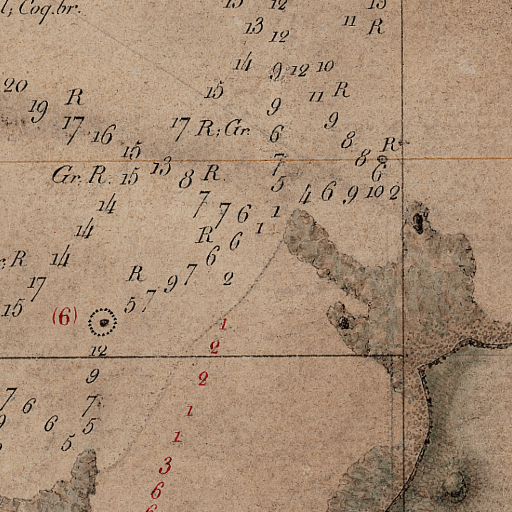 l; Coq. br.
13 12 13
13 12 11 R
14 9 12 10
20 19 R 15 9 11 R
17 16 17 R; Gr. 6 9 8
15 7 8 R
Gr. R. 15 13 8 R. 5 6
14 7 7 6 1 4 6 9 10 2
14 R 6 1
R 14 R 6
17 5 7 9 7 2
15 (6) 1
12 2
9 2
7 6 7 1
6 5 5 1
3
6
6